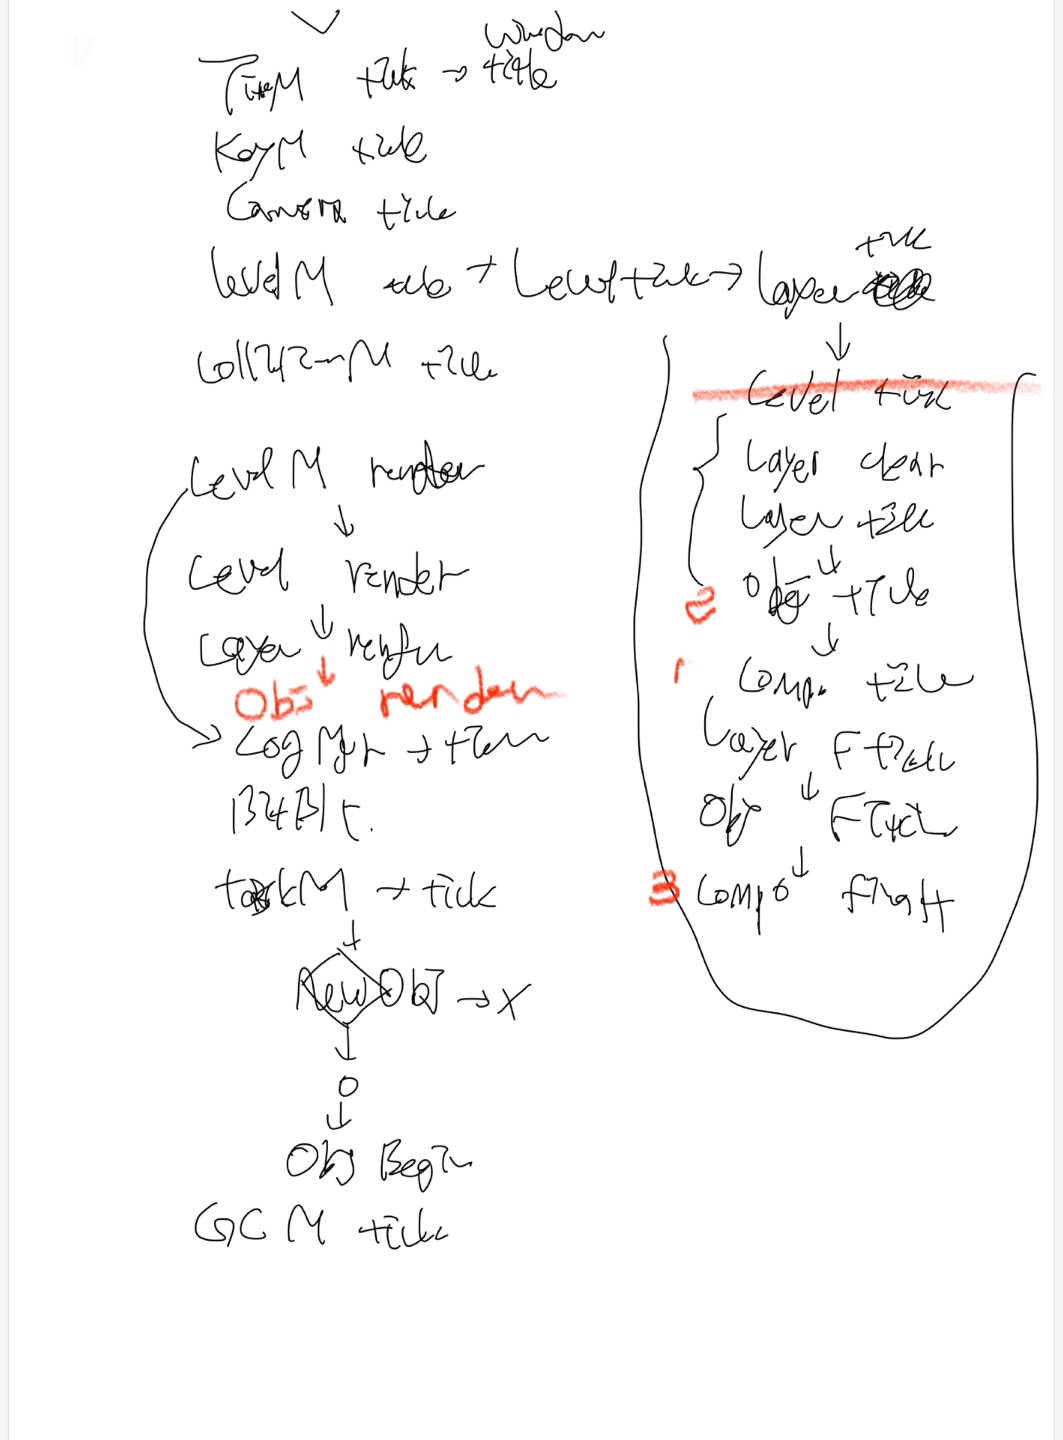 window
TimeM tick → title
KeyM tick
Camera tick
LevelM tick → Level tick → Layer tick
CollisionM tick
LevelM render
↓
Level render
↓
Layer render
↓
Obj render
LogMgr → tick
BitBlt.
taskM → tick
↓
New Obj → X
↓
O
↓
Obj Begin
GCM tick
↓
Level tick
Layer clear
Layer tick
↓
2 Obj tick
↓
1 Comp. tick
Layer Ftick
↓
Obj Ftick
↓
3 Compo